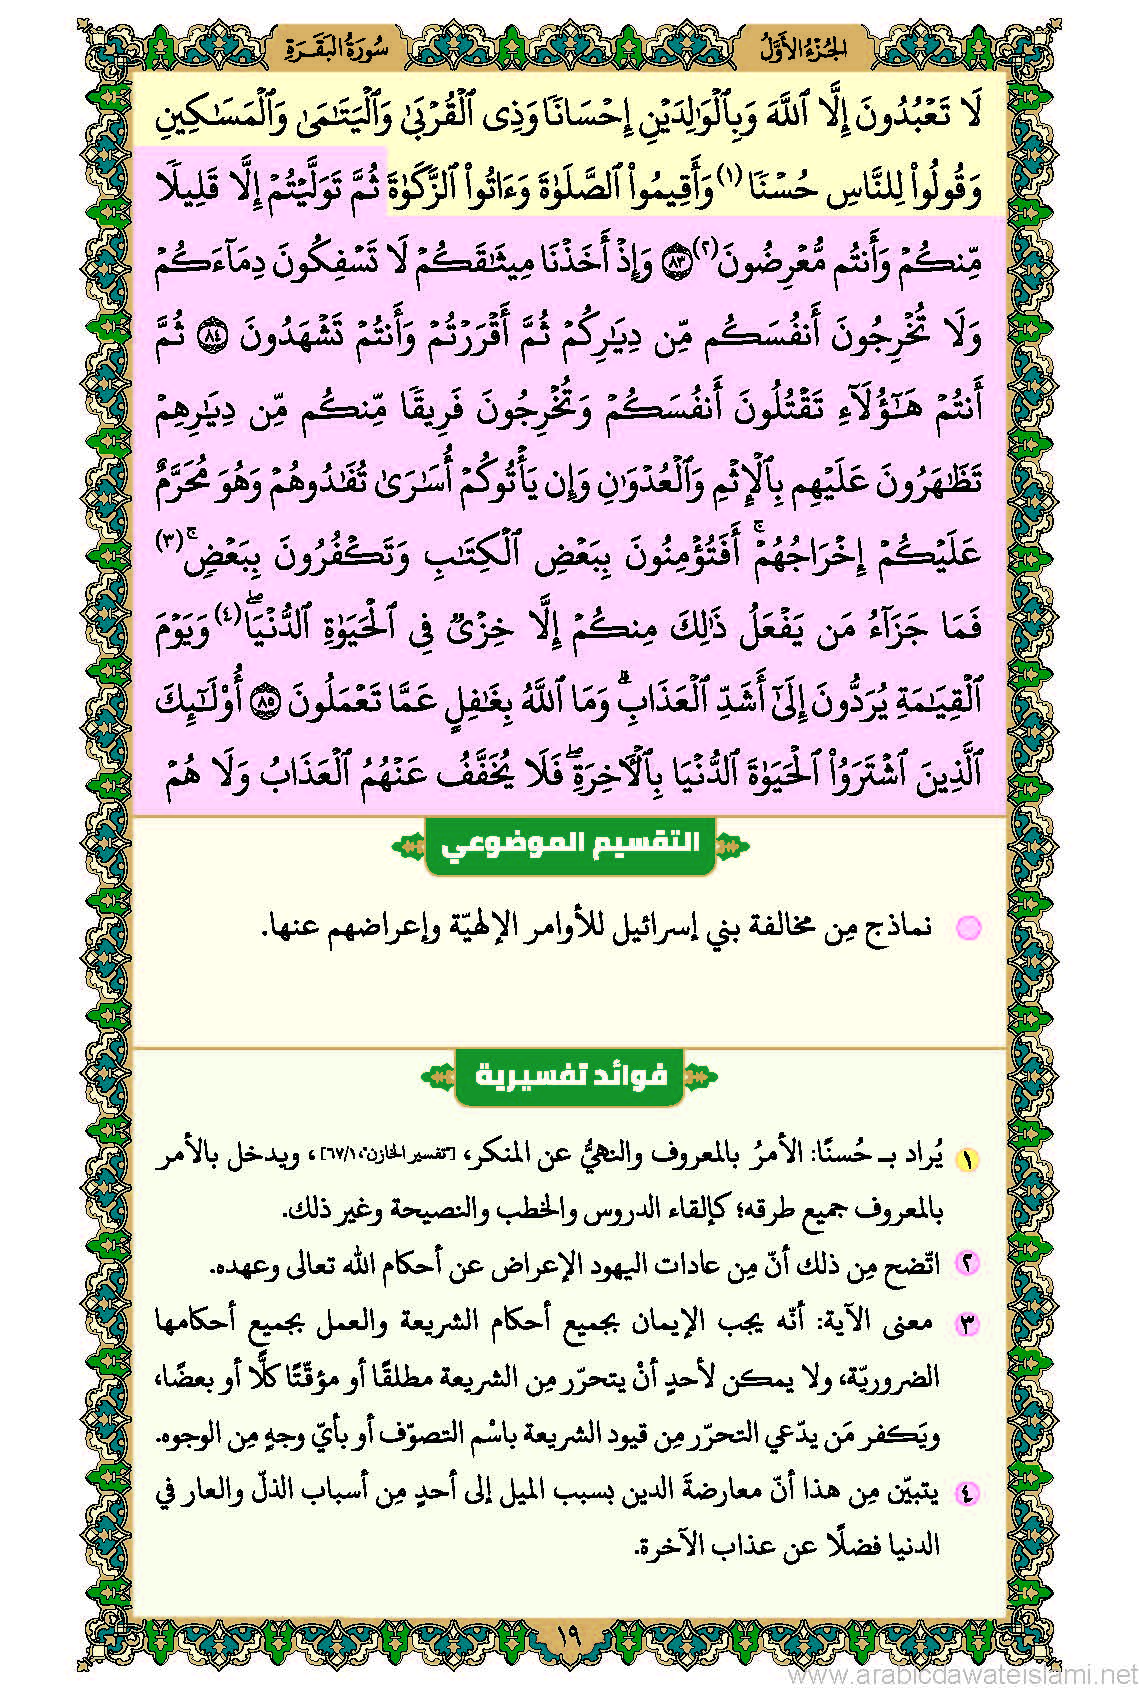 الجُزْءُ الأَوَّلُ
سُورَةُ البَقَرَةِ
لَا تَعۡبُدُونَ إِلَّا ٱللَّهَ وَبِٱلۡوَٰلِدَيۡنِ إِحۡسَانٗا وَذِي ٱلۡقُرۡبَىٰ وَٱلۡيَتَٰمَىٰ وَٱلۡمَسَٰكِينِ
وَقُولُواْ لِلنَّاسِ حُسۡنٗا (١) وَأَقِيمُواْ ٱلصَّلَوٰةَ وَءَاتُواْ ٱلزَّكَوٰةَ ثُمَّ تَوَلَّيۡتُمۡ إِلَّا قَلِيلٗا
مِّنكُمۡ وَأَنتُم مُّعۡرِضُونَ (٢) ٨٣ وَإِذۡ أَخَذۡنَا مِيثَٰقَكُمۡ لَا تَسۡفِكُونَ دِمَآءَكُمۡ
وَلَا تُخۡرِجُونَ أَنفُسَكُم مِّن دِيَٰرِكُمۡ ثُمَّ أَقۡرَرۡتُمۡ وَأَنتُمۡ تَشۡهَدُونَ ٨٤ ثُمَّ
أَنتُمۡ هَٰٓؤُلَآءِ تَقۡتُلُونَ أَنفُسَكُمۡ وَتُخۡرِجُونَ فَرِيقٗا مِّنكُم مِّن دِيَٰرِهِمۡ
تَظَٰهَرُونَ عَلَيۡهِم بِٱلۡإِثۡمِ وَٱلۡعُدۡوَٰنِ وَإِن يَأۡتُوكُمۡ أُسَٰرَىٰ تُفَٰدُوهُمۡ وَهُوَ مُحَرَّمٌ
عَلَيۡكُمۡ إِخۡرَاجُهُمۡۚ أَفَتُؤۡمِنُونَ بِبَعۡضِ ٱلۡكِتَٰبِ وَتَكۡفُرُونَ بِبَعۡضٖۚ (٣)
فَمَا جَزَآءُ مَن يَفۡعَلُ ذَٰلِكَ مِنكُمۡ إِلَّا خِزۡيٞ فِي ٱلۡحَيَوٰةِ ٱلدُّنۡيَاۖ (٤) وَيَوۡمَ
ٱلۡقِيَٰمَةِ يُرَدُّونَ إِلَىٰٓ أَشَدِّ ٱلۡعَذَابِۗ وَمَا ٱللَّهُ بِغَٰفِلٍ عَمَّا تَعۡمَلُونَ ٨٥ أُوْلَٰٓئِكَ
ٱلَّذِينَ ٱشۡتَرَوُاْ ٱلۡحَيَوٰةَ ٱلدُّنۡيَا بِٱلۡأٓخِرَةِۖ فَلَا يُخَفَّفُ عَنۡهُمُ ٱلۡعَذَابُ وَلَا هُمۡ
التقسيم الموضوعي
نماذج مِن مخالفة بني إسرائيل للأوامر الإلهيّة وإعراضهم عنها.
فوائد تفسيرية
١ يُراد بـ حُسنًا: الأمرُ بالمعروف والنهيُّ عن المنكر، [«تفسير الخازن»، ٦٧/١]، ويدخل بالأمر
بالمعروف جميع طرقه؛ كإلقاء الدروس والخطب والنصيحة وغير ذلك.
٢ اتّضح مِن ذلك أنّ مِن عادات اليهود الإعراض عن أحكام الله تعالى وعهده.
٣ معنى الآية: أنّه يجب الإيمان بجميع أحكام الشريعة والعمل بجميع أحكامها
الضروريّة، ولا يمكن لأحدٍ أنْ يتحرّر مِن الشريعة مطلقًا أو مؤقّتًا كلًّا أو بعضًا،
ويَكفر مَن يدّعي التحرّر مِن قيود الشريعة باسْم التصوّف أو بأيّ وجهٍ مِن الوجوه.
٤ يتبيّن مِن هذا أنّ معارضةَ الدين بسبب الميل إلى أحدٍ مِن أسباب الذلّ والعار في
الدنيا فضلًا عن عذاب الآخرة.
١٩
www.arabicdawateislami.net